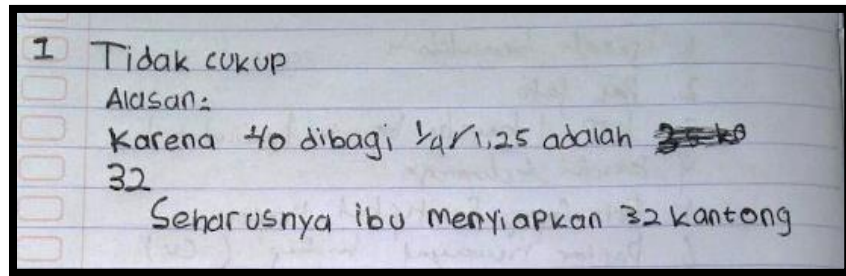 1 Tidak cukup
Alasan:
Karena 40 dibagi 1/4/1,25 adalah
32
Seharusnya ibu menyiapkan 32 kantong